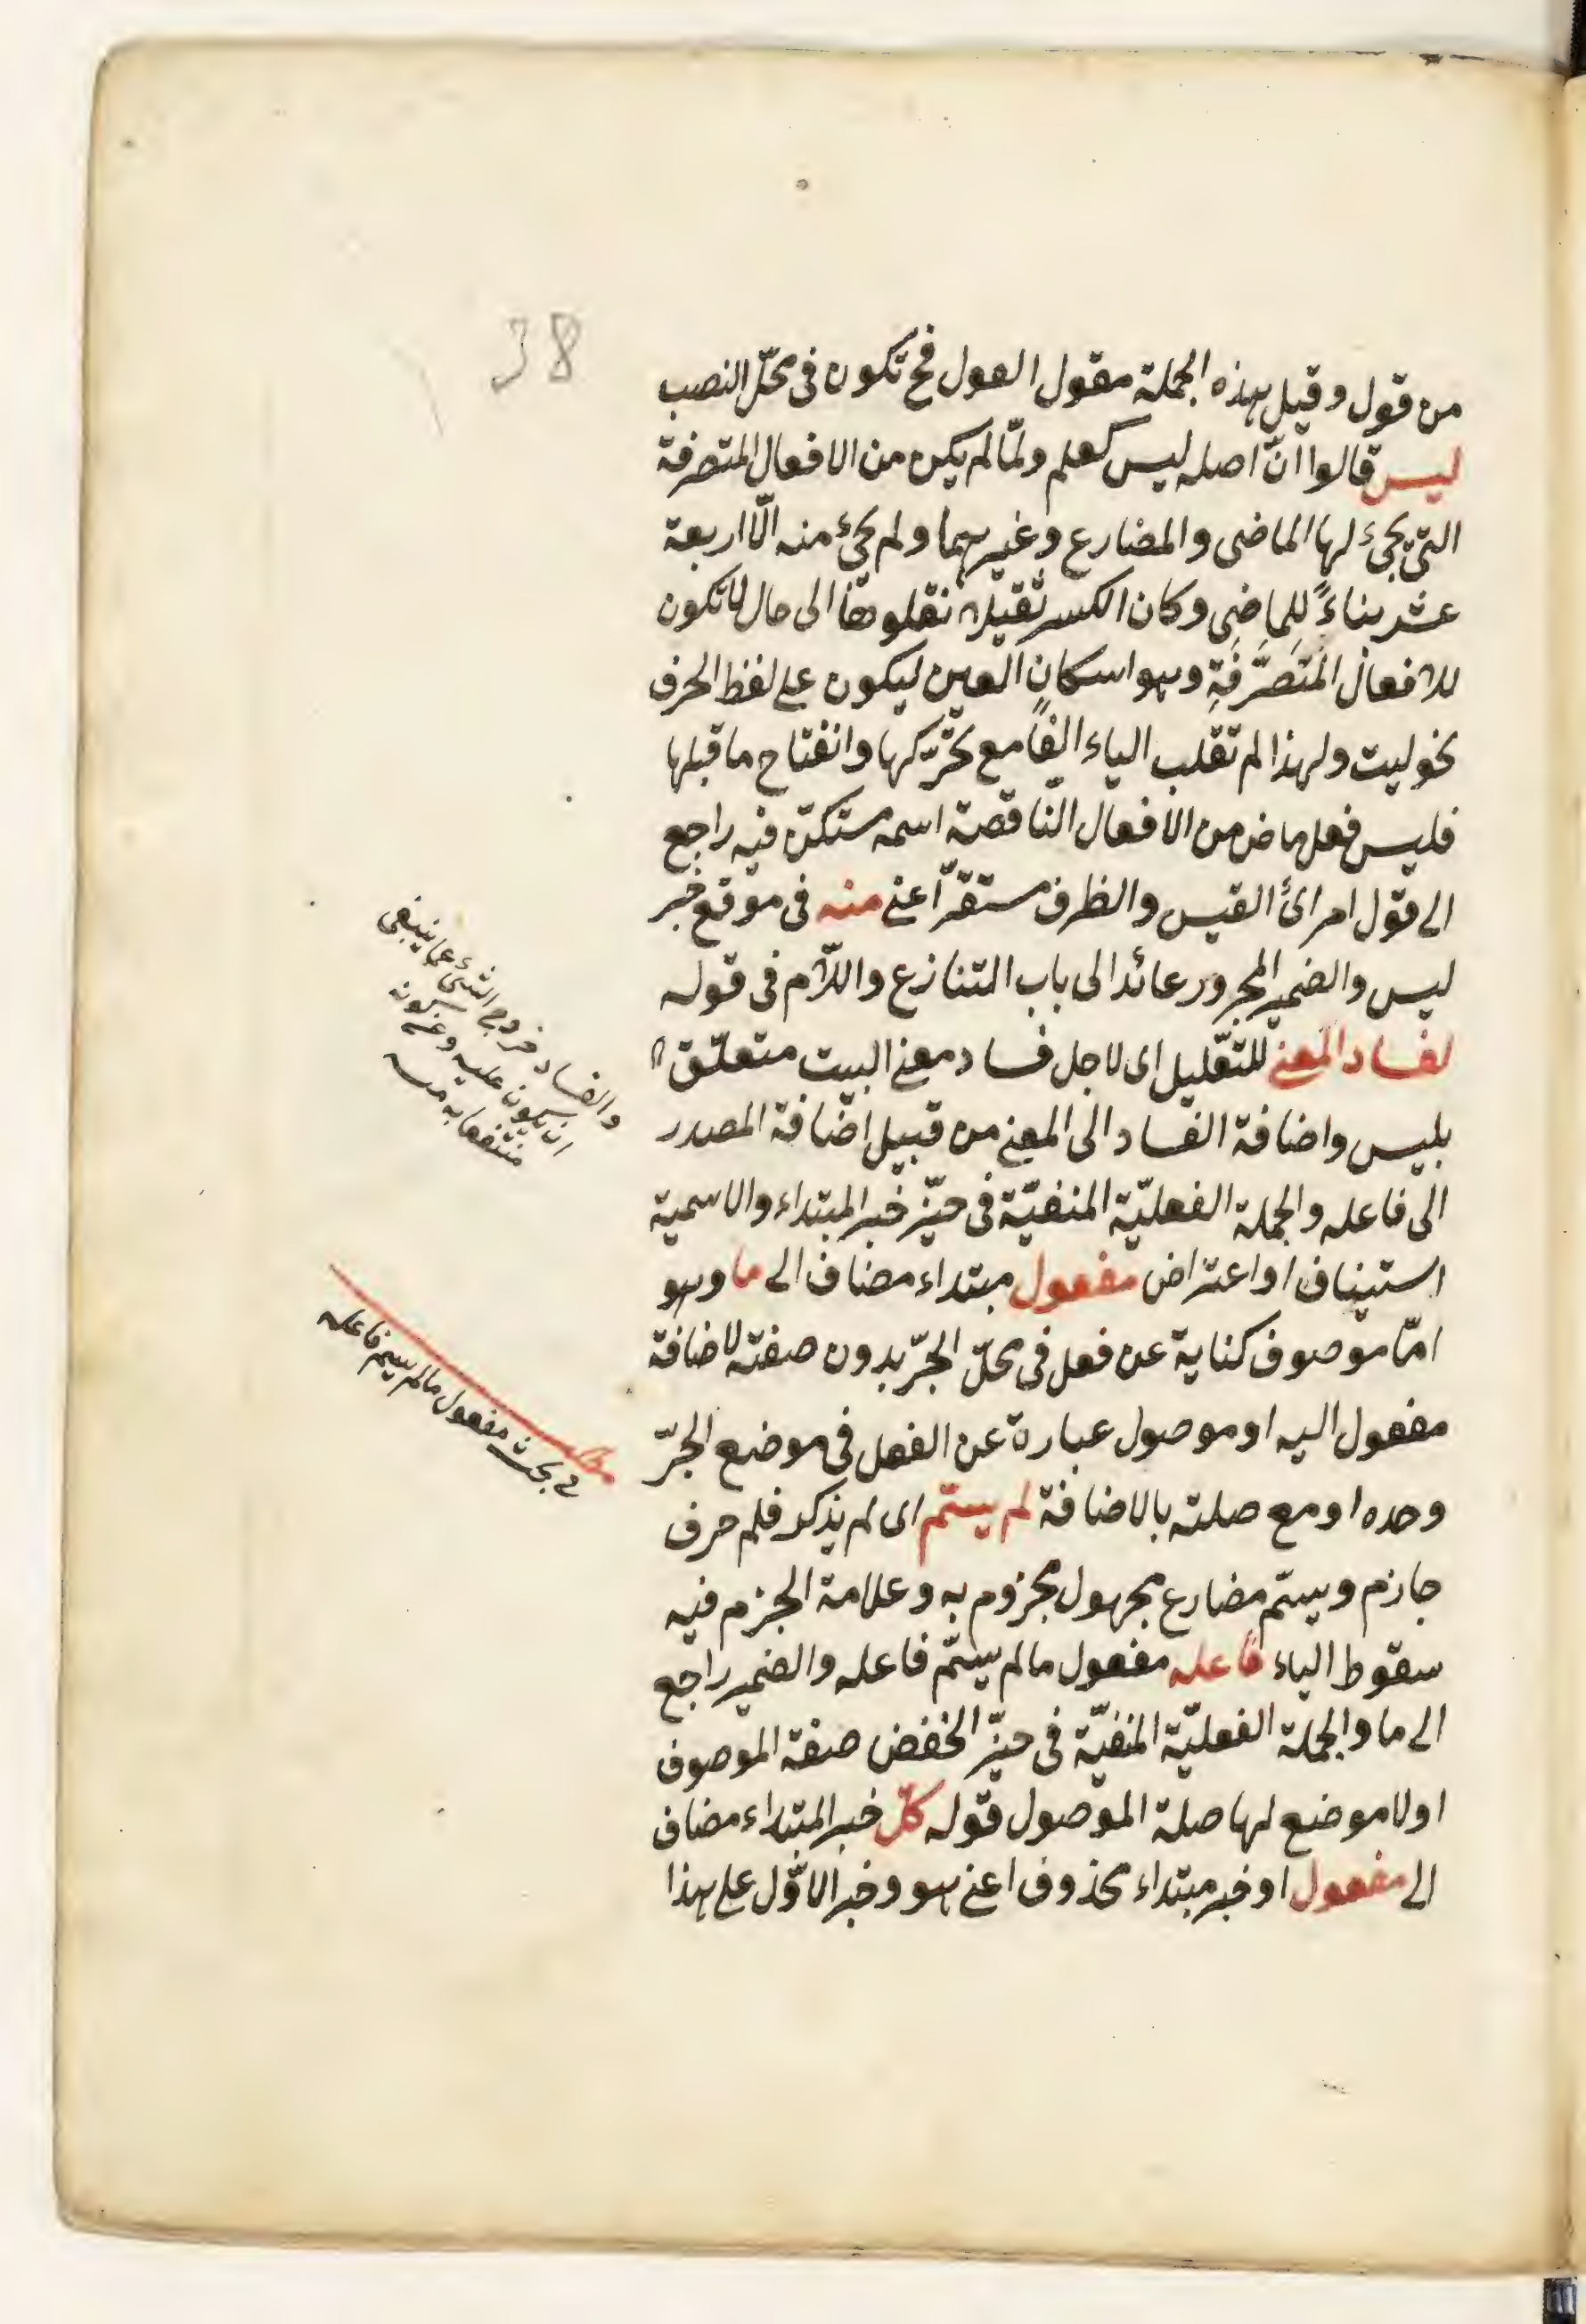 38
من قول وقيل هذه الجملة مقول القول فح تكون فى محلّ النصب
ليس قالوا انّ اصله ليس كعلم ولمّا لم يكن من الافعال المتصرفة
التى يجئ لها الماضى والمضارع وغيرهما ولم يجئ منه الّا اربعة
عشر بناءً للماضِى وكان الكسر ثقيلا نقلوها الى حال لا تكون
للافعال المتَصَرَّفَةِ وهو اسكان العين ليكون على لفظ الحرف
نحو ليت ولهذا لم تقلب الياء الفًا مع تحرّكها وانفتاح ما قبلها
فليس فعل ماض من الافعال النّاقصة اسمه مستكنّ فيه راجع
الى قول امرائ القيس والظرف مستقرّ اعنى منه فى موقع خبر
ليس والضمير المجرور عائد الى باب التنازع واللّام فى قوله
لفساد المعنى للتّعليل اى لاجل فساد معنى البيت متعلّق
بليس واضافة الفساد الى المعنى من قبيل اضافة المصدر
الى فاعله والجملة الفعليّة المنفيّة فى حيّز خبر المبتداء والاسمية
استيناف او اعتراض مفعول مبتداء مضاف الى ما وهو
امّا موصوف كناية عن فعل فى محلّ الجرّ بدون صفته لاضافة
مفعول اليه او موصول عبارة عن الفعل فى موضع الجرّ
وحده او مع صلته بالاضافة لم يسمّ اى لم يذكر فلم حرف
جازم ويسمّ مضارع مجهول مجزوم به وعلامة الجزم فيه
سقوط الياء فاعله مفعول مالم يسمّ فاعله والضمير راجع
الى ما والجملة الفعليّة المنفيّة فى حيّز الخفض صفة الموصوف
او لا موضع لها صلة الموصول قوله كلّ خبر المبتداء مضاف
الى مفعول او خبر مبتداء محذوف اعنى هو وخبر الاوّل على هذا
والفساد خروج الشئ عما ينبغى
ان يكون عليه وعن كونه
منتفعا به
فى بحث مفعول مالم يسم فاعله